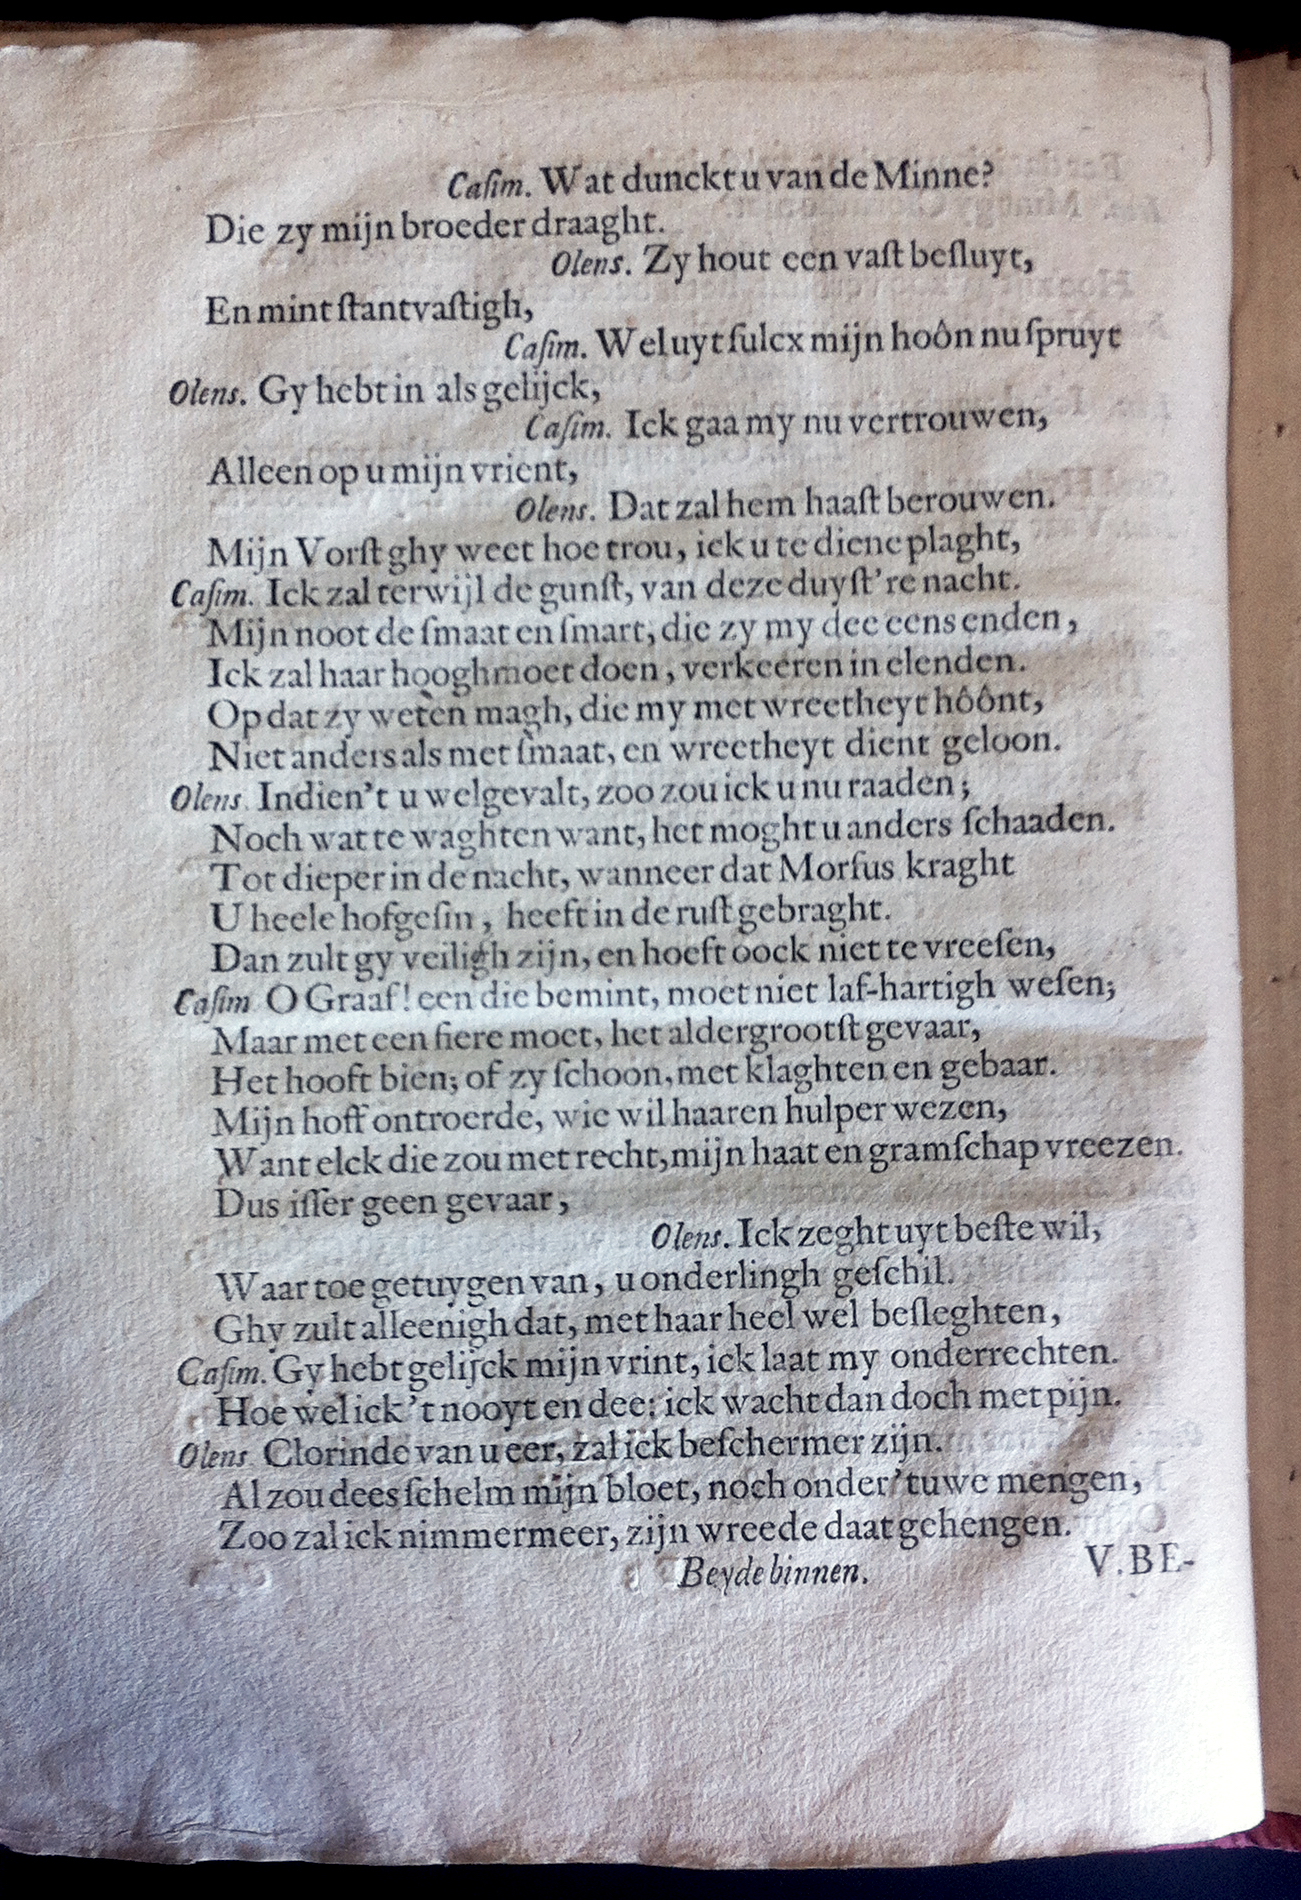 Caſim. Wat dunckt u van de Minne?
Die zy mijn broeder draaght.
Olens. Zy hout een vaſt beſluyt,
En mint ſtantvaſtigh,
Caſim. Wel uyt ſulcx mijn hoôn nu ſpruyt
Olens. Gy hebt in als gelijck,
Caſim. Ick gaa my nu vertrouwen,
Alleen op u mijn vrient,
Olens. Dat zal hem haaſt berouwen.
Mijn Vorſt ghy weet hoe trou, ick u te diene plaght,
Caſim. Ick zal terwijl de gunſt, van deze duyſt're nacht.
Mijn noot de ſmaat en ſmart, die zy my dee eens enden,
Ick zal haar hooghmoet doen, verkeeren in elenden.
Op dat zy weten magh, die my met wreetheyt hôônt,
Niet anders als met ſmaat, en wreetheyt dient geloon.
Olens. Indien't u welgevalt, zoo zou ick u nu raaden;
Noch wat te waghten want, het moght u anders ſchaaden.
Tot dieper in de nacht, wanneer dat Morſus kraght
U heele hofgeſin, heeft in de ruſt gebraght.
Dan zult gy veiligh zijn, en hoeft oock niet te vreeſen,
Caſim O Graaf! een die bemint, moet niet laf-hartigh weſen;
Maar met een fiere moet, het aldergrootſt gevaar,
Het hooft bien; of zy ſchoon, met klaghten en gebaar.
Mijn hoff ontroerde, wie wil haaren hulper wezen,
Want elck die zou met recht, mijn haat en gramſchap vreezen.
Dus iſſer geen gevaar,
Olens. Ick zeght uyt beſte wil,
Waar toe getuygen van, u onderlingh geſchil.
Ghy zult alleenigh dat, met haar heel wel beſleghten,
Caſim. Gy hebt gelijck mijn vrint, ick laat my onderrechten.
Hoe wel ick 't nooyt en dee: ick wacht dan doch met pijn.
Olens Clorinde van u eer, zal ick beſchermer zijn.
Al zou dees ſchelm mijn bloet, noch onder 't uwe mengen,
Zoo zal ick nimmermeer, zijn wreede daat gehengen.
Beyde binnen.
V. BE-